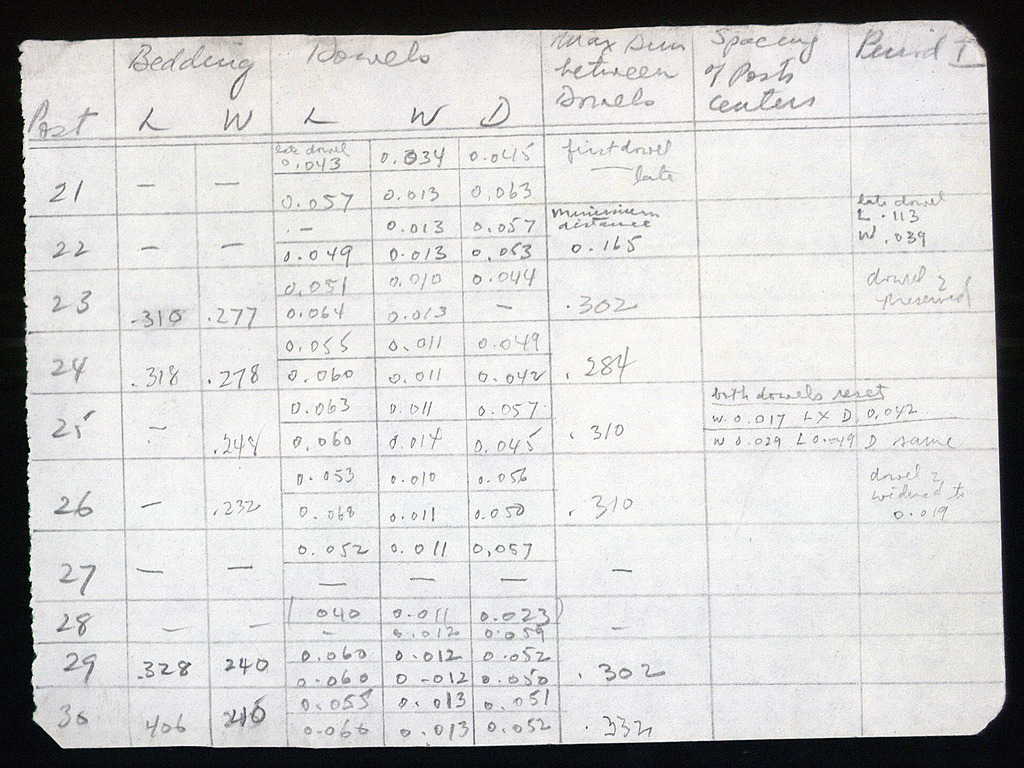 Bedding Dowels Max Dim between Dowels Spacing of Posts centers Period I
Post L W L W D
21 — — late dowel 0.043 0.034 0.045 first dowel late
0.057 0.013 0.063
22 — — — 0.013 0.057 minimum distance 0.165 late dowel L .113 W .039
0.049 0.013 0.053
23 .310 .277 0.051 0.010 0.044 .302 dowel 2 preserved
0.064 0.013 —
24 .318 .278 0.055 0.011 0.049 .284
0.060 0.011 0.042
25 — .248 0.063 0.011 0.057 .310 both dowels reset
W 0.017 L X D 0.042
0.060 0.014 0.045 W 0.029 L 0.049 D same
26 — .232 0.053 0.010 0.056 .310 dowel 2 widened to 0.019
0.068 0.011 0.050
27 — — 0.052 0.011 0.057 —
— — —
28 — — (040 0.011 0.023) —
— 0.012 0.059
29 .328 240 0.060 0.012 0.052 .302
0.060 0.012 0.050
30 406 0.055 0.013 .051 .332
0.066 0.013 0.052